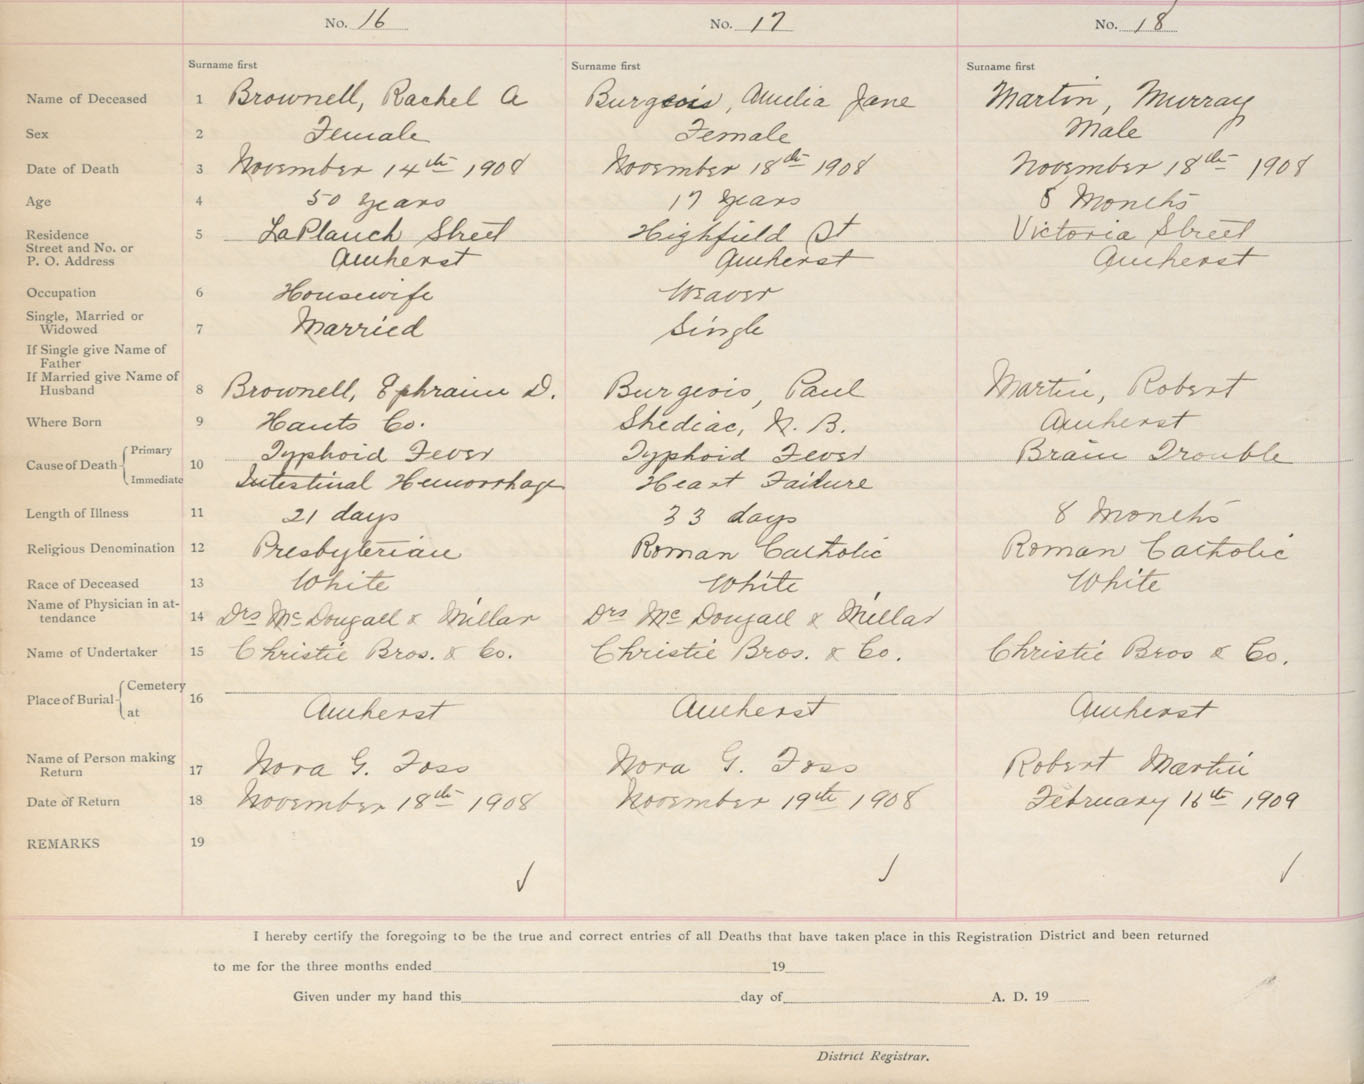 No. 16 No. 17 No. 18
Surname first Surname first Surname first
Name of Deceased 1 Brownell, Rachel A Burgeois, Amelia Jane Martin, Murray
Sex 2 Female Female Male
Date of Death 3 November 14th 1908 November 18th 1908 November 18th 1908
Age 4 50 years 17 years 8 Months
Residence 5 LaPlanch Street Highfield St Victoria Street
Street and No. or
P. O. Address Amherst Amherst Amherst
Occupation 6 Housewife Weaver
Single, Married or
Widowed 7 Married Single
If Single give Name of
Father
If Married give Name of
Husband 8 Brownell, Ephraim D. Burgeois, Paul Martin, Robert
Where Born 9 Hants Co. Shediac, N. B. Amherst
Cause of Death Primary 10 Typhoid Fever Typhoid Fever Brain Trouble
Immediate Intestinal Hemorrhage Heart Failure
Length of Illness 11 21 days 33 days 8 Months
Religious Denomination 12 Presbyterian Roman Catholic Roman Catholic
Race of Deceased 13 White White White
Name of Physician in at-
tendance 14 Drs McDougall & Millar Drs McDougall & Millar
Name of Undertaker 15 Christie Bros. & Co. Christie Bros. & Co. Christie Bros & Co.
Place of Burial Cemetery 16
at Amherst Amherst Amherst
Name of Person making
Return 17 Nora G. Foss Nora G. Foss Robert Martin
Date of Return 18 November 18th 1908 November 19th 1908 February 16th 1909
REMARKS 19
I hereby certify the foregoing to be the true and correct entries of all Deaths that have taken place in this Registration District and been returned
to me for the three months ended 19
Given under my hand this day of A. D. 19
District Registrar.